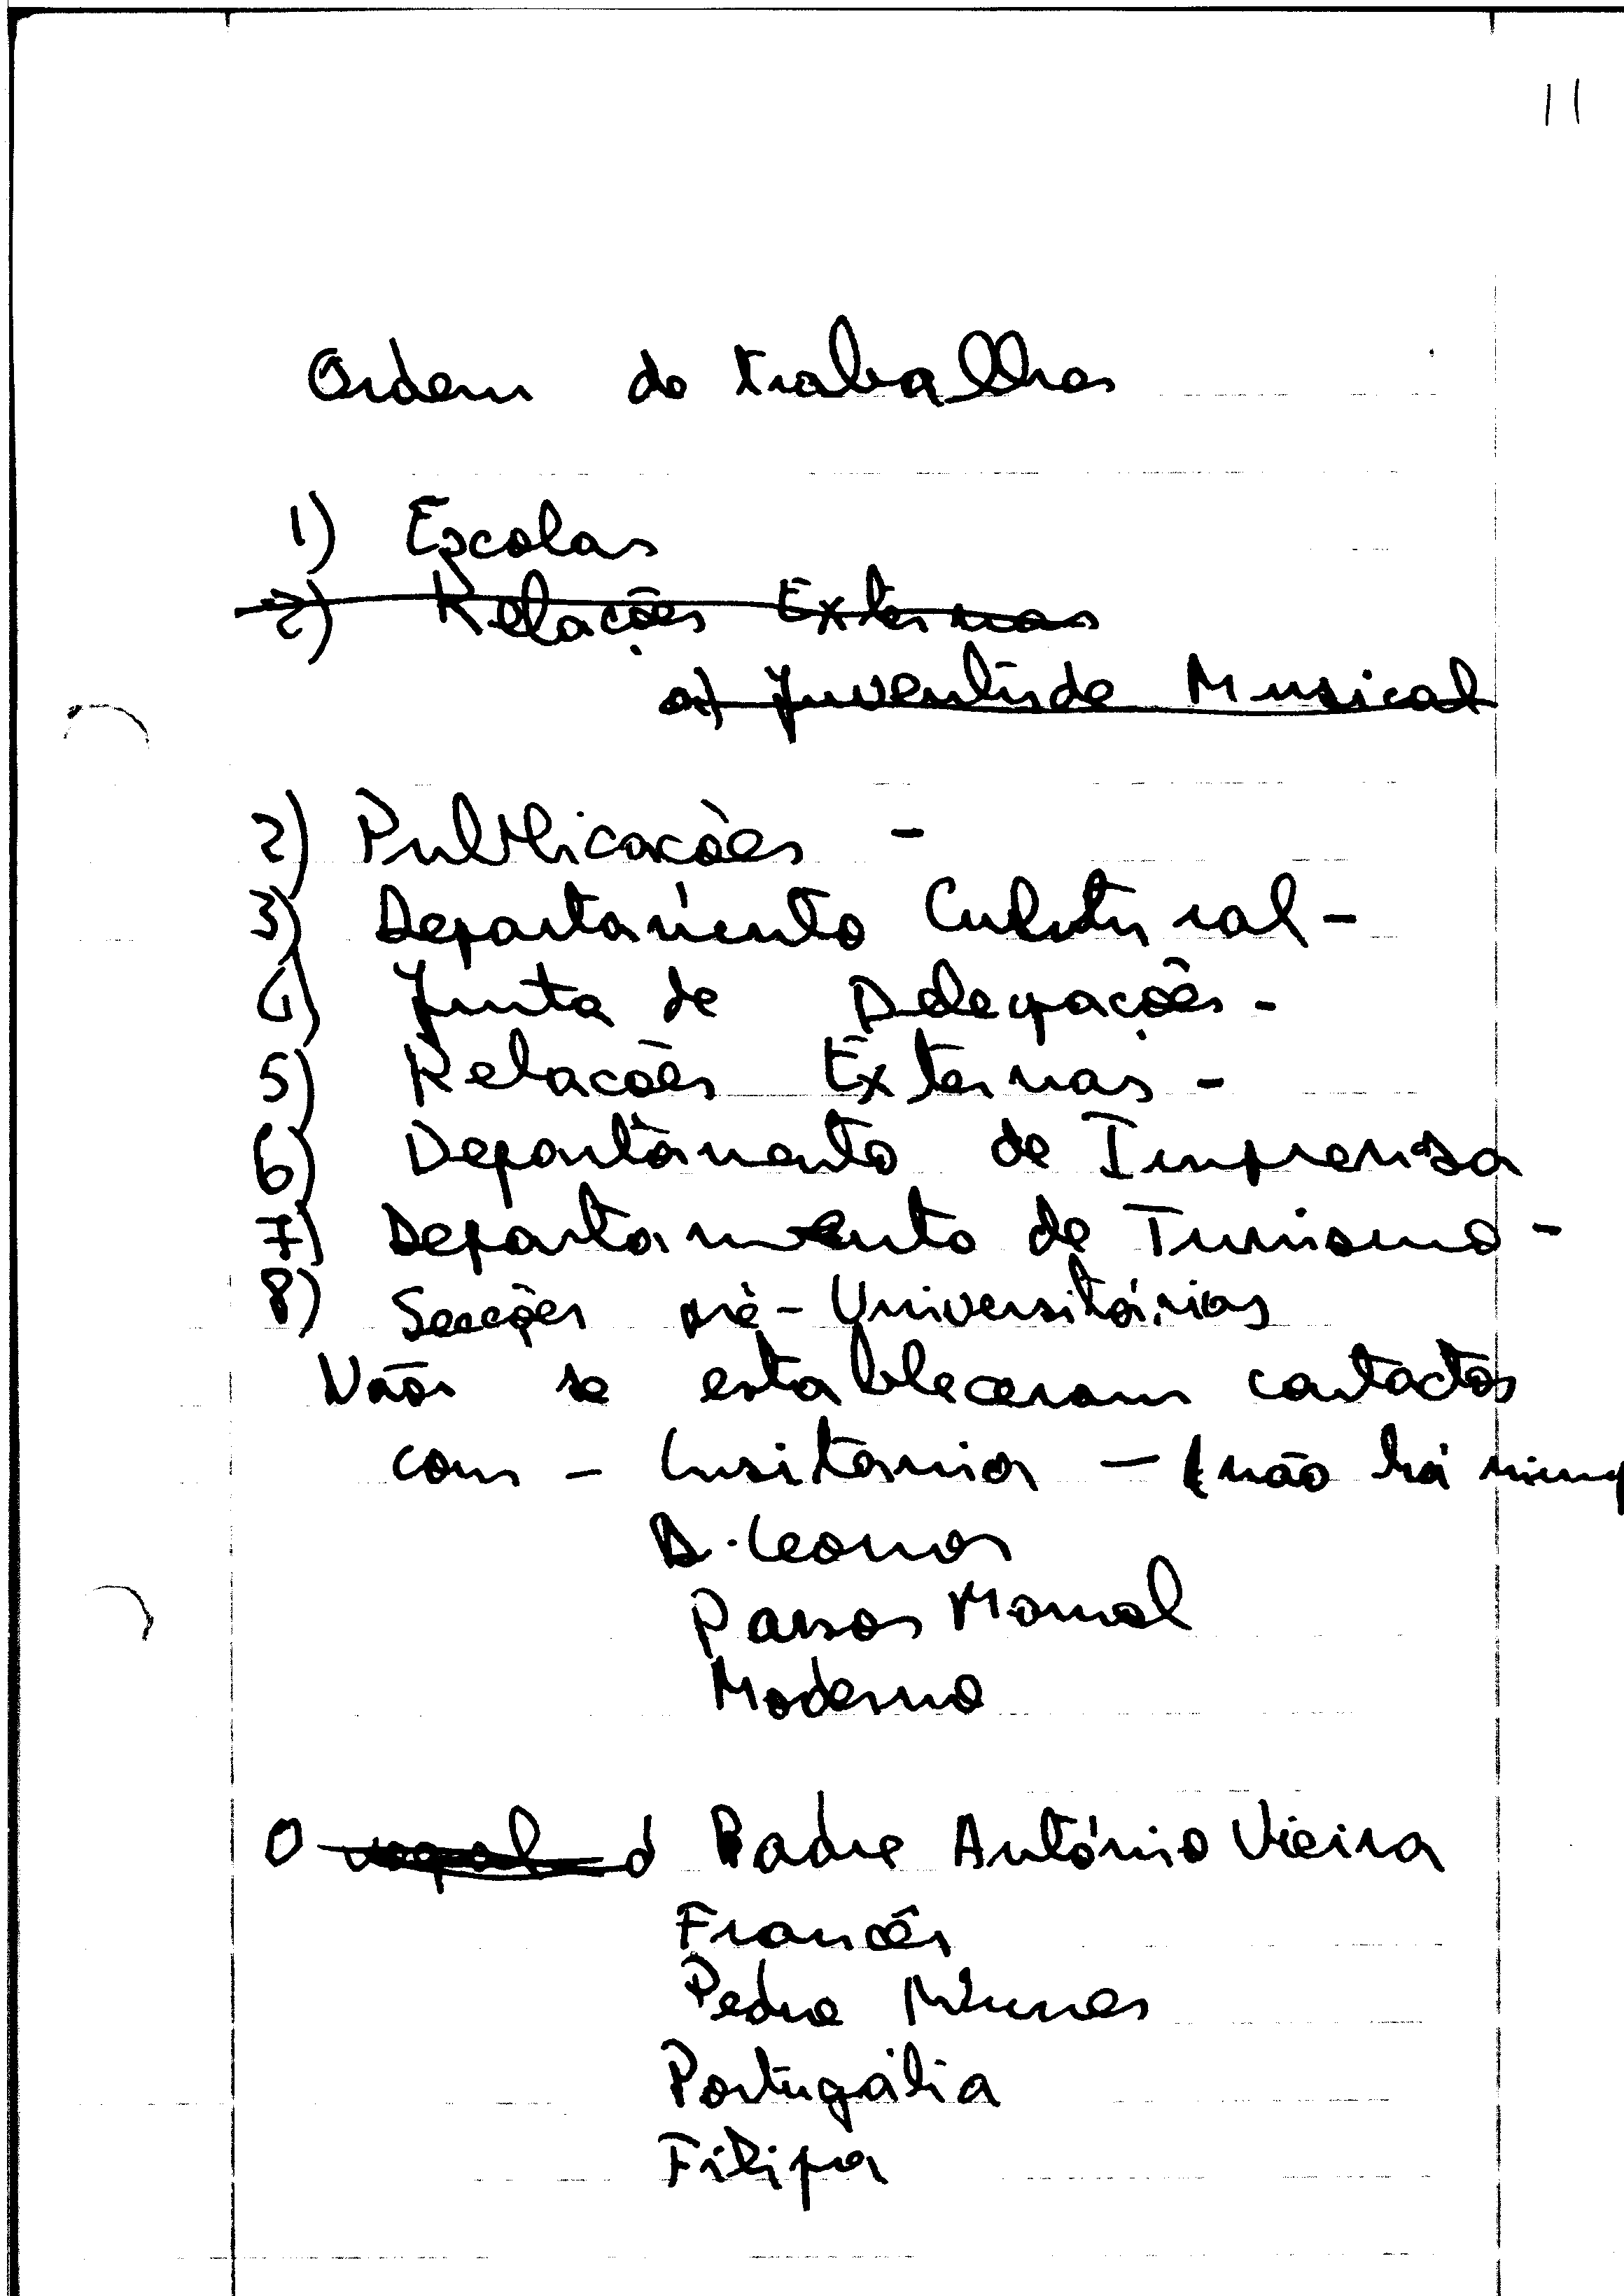 11
Ordem do trabalhos
1) Escolas
2) Relações Externas
a) Juventude Musical
2) Publicações -
3) Departamento Cultural -
4) Junta de Delegações -
5) Relações Externas -
6) Departamento de Imprensa
7) Departamento de Turismo -
8) Secções pré-Universitárias
Não se estableceram contactos
com - Lusitania - (não há
D. Leonor
Passos Manuel
Moderno
O vogal d Padre António Vieira
Francês
Pedro Nunes
Portugália
Filipa